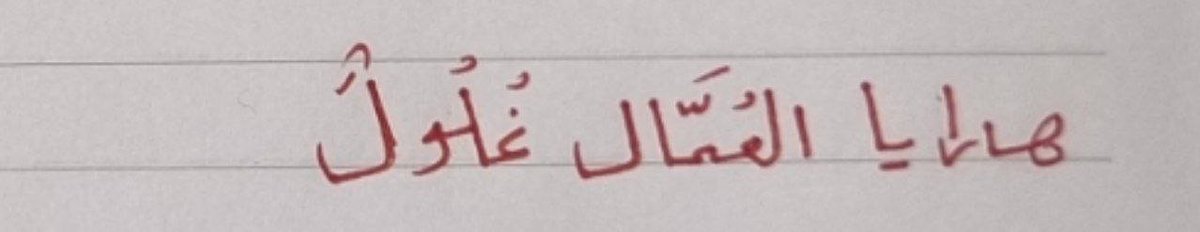 هدايا العُمَّال غُلُولٌ